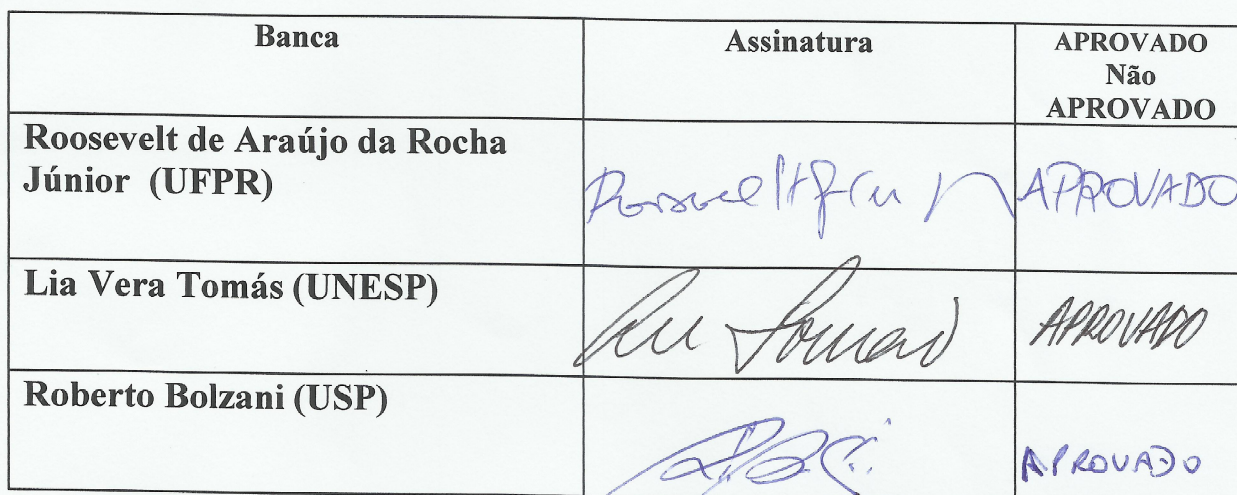 Banca
Assinatura
APROVADO
Não
APROVADO
Roosevelt de Araújo da Rocha
Júnior (UFPR)
APROVADO
Lia Vera Tomás (UNESP)
APROVADO
Roberto Bolzani (USP)
APROVADO